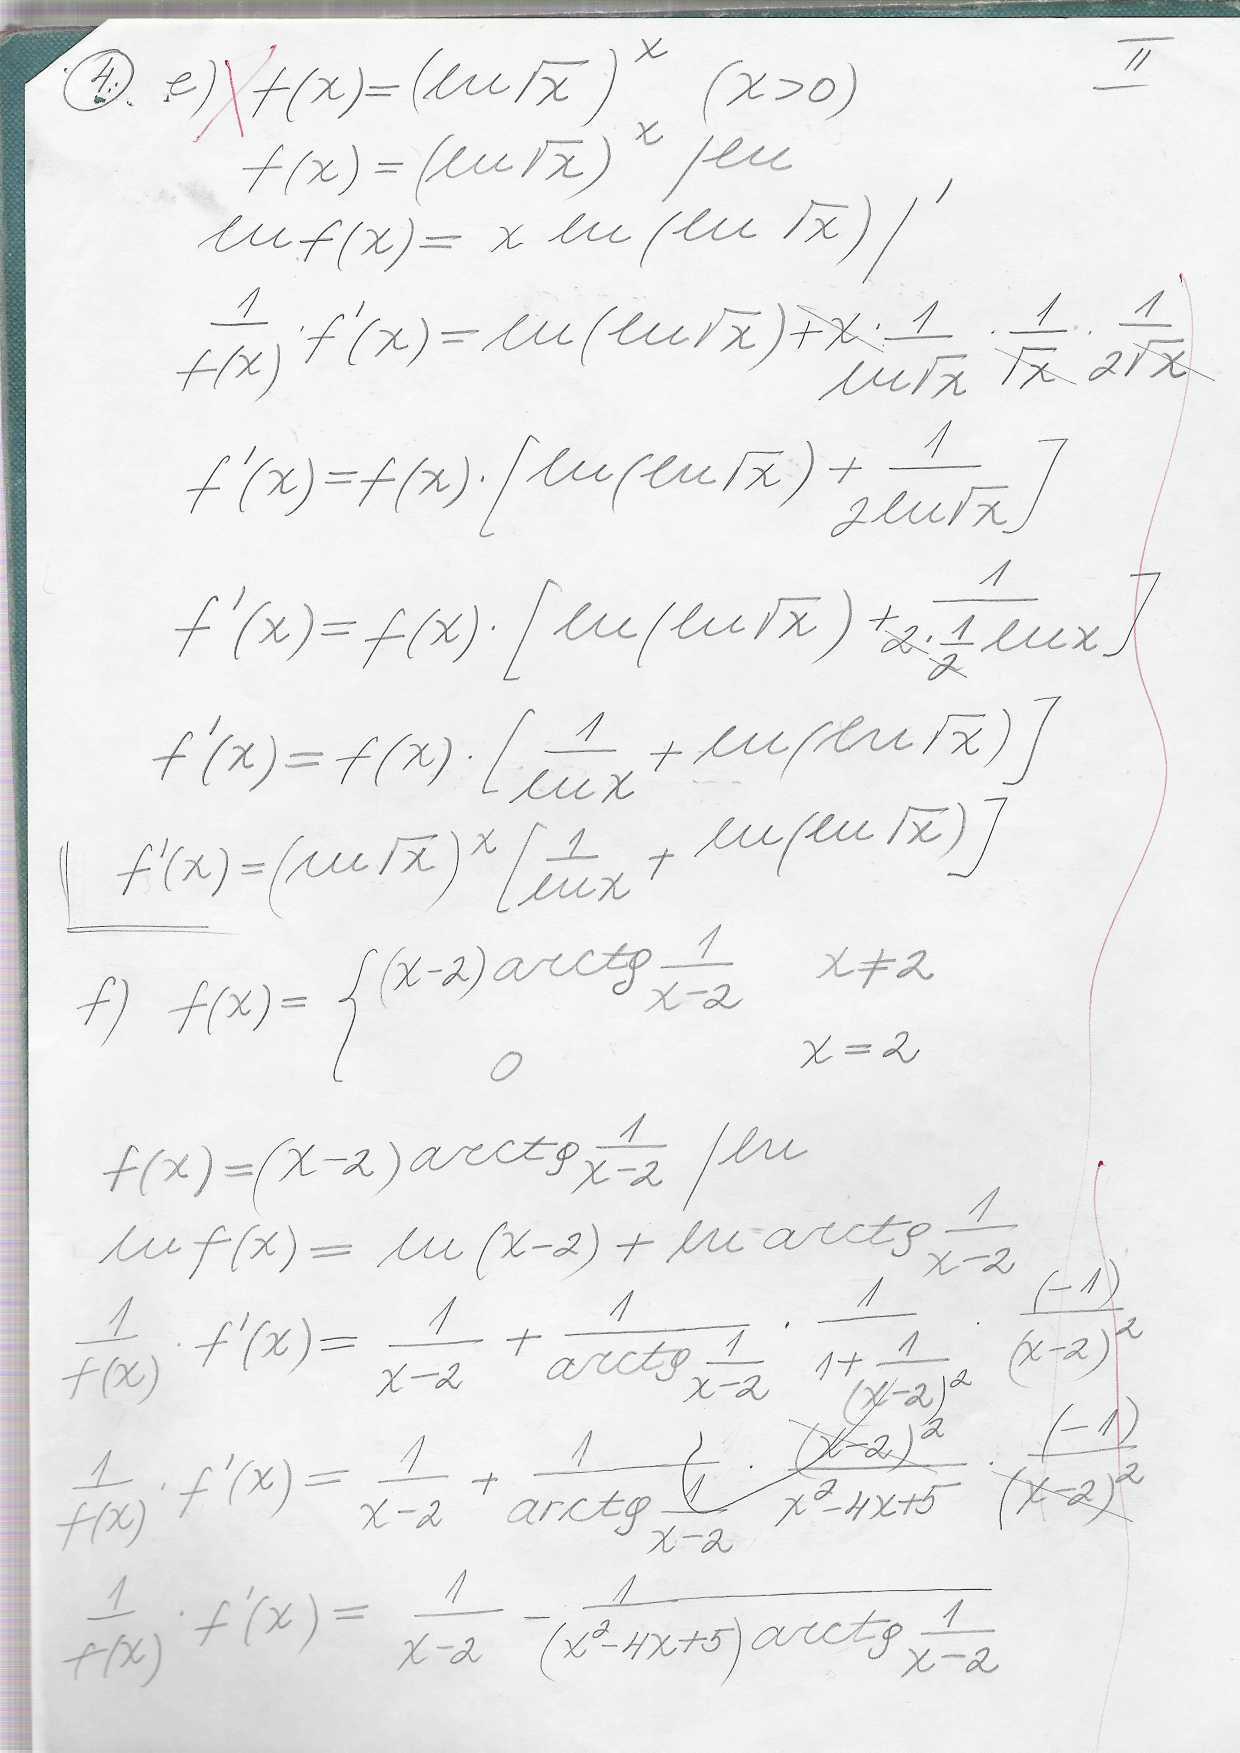 4. e) f(x) = (ln √x)^x (x>0) II
f(x) = (ln √x)^x /ln
ln f(x) = x ln (ln √x) /'
1/f(x) · f'(x) = ln (ln √x) + x · 1/(ln √x) · 1/√x · 1/(2√x)
f'(x) = f(x) · [ln (ln √x) + 1/(2 ln √x)]
f'(x) = f(x) · [ln (ln √x) + 1/(2 · 1/2 ln x)]
f'(x) = f(x) · [1/(ln x) + ln (ln √x)]
f'(x) = (ln √x)^x [1/(ln x) + ln (ln √x)]
f) f(x) = { (x-2) arctg 1/(x-2) x ≠ 2
0 x = 2
f(x) = (x-2) arctg 1/(x-2) /ln
ln f(x) = ln (x-2) + ln arctg 1/(x-2)
1/f(x) · f'(x) = 1/(x-2) + 1/(arctg 1/(x-2)) · 1/(1 + 1/(x-2)²) · (-1)/(x-2)²
1/f(x) · f'(x) = 1/(x-2) + 1/(arctg 1/(x-2)) · (x-2)²/(x²-4x+5) · (-1)/(x-2)²
1/f(x) · f'(x) = 1/(x-2) - 1/((x²-4x+5) arctg 1/(x-2))